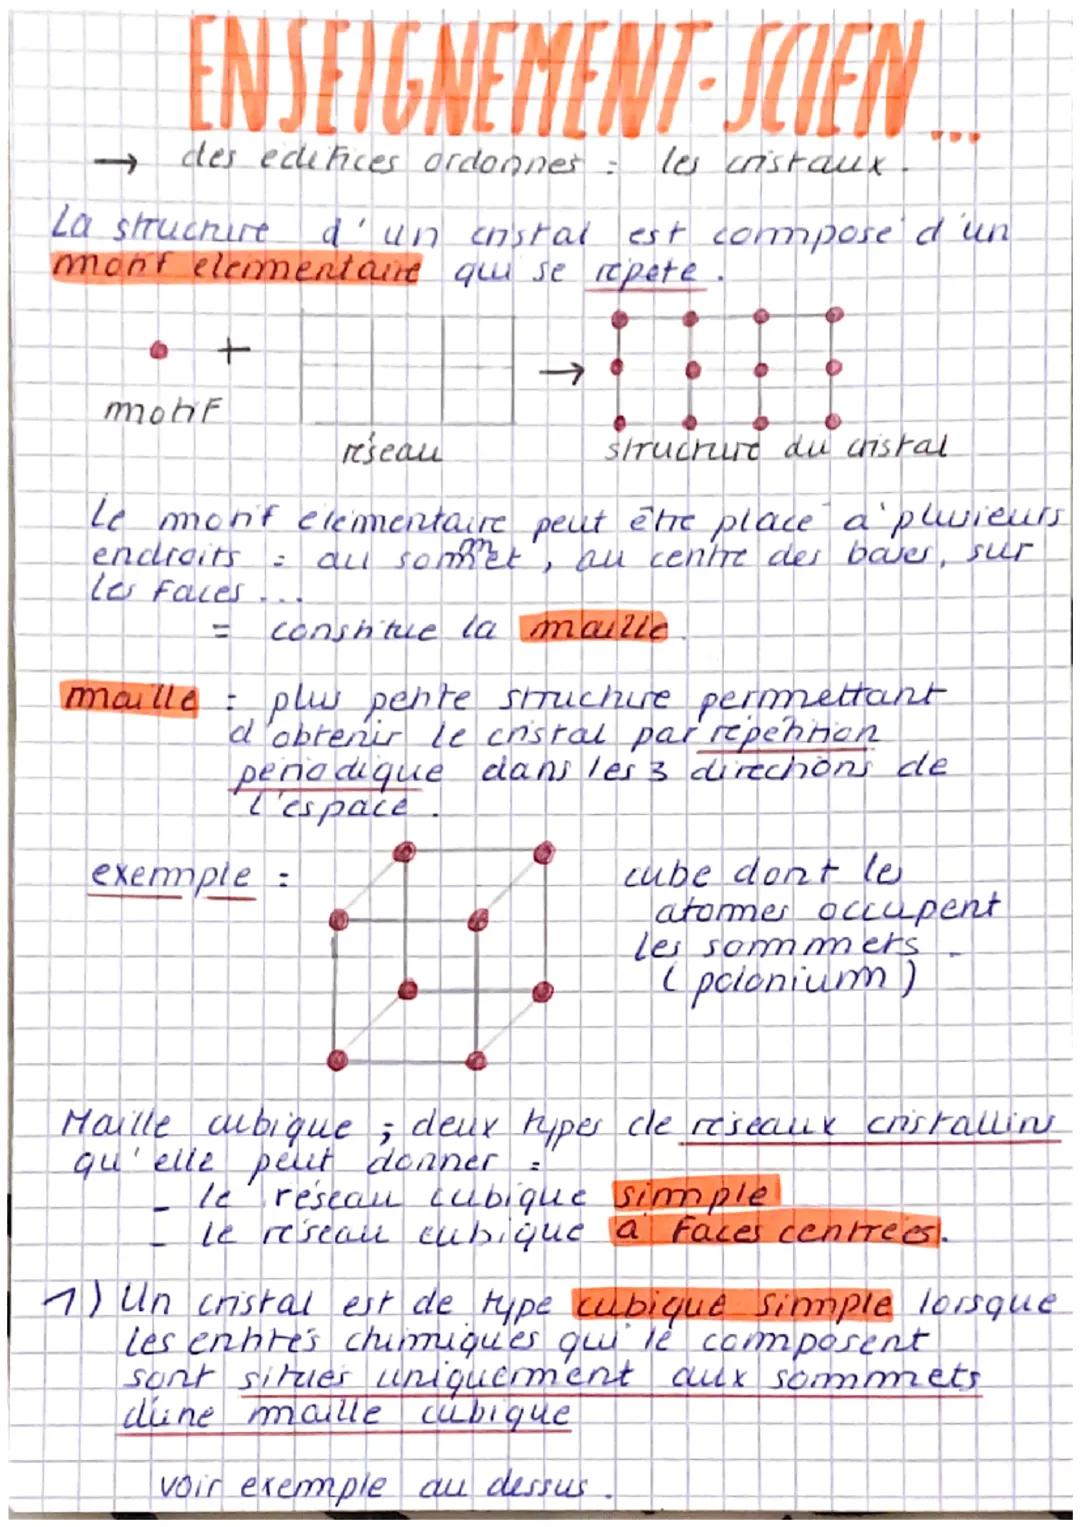 ENSEIGNEMENT-SCIEN...
→ des édifices ordonnés : les cristaux.
La structure d'un cristal est composé d'un
motif élémentaire qui se répète.
+
→
motif
réseau
structure du cristal
Le motif élémentaire peut être placé à plusieurs
endroits : au sommet, au centre des bases, sur
les faces...
= constitue la maille.
maille : plus petite structure permettant
d'obtenir le cristal par répétition
périodique dans les 3 directions de
l'espace.
exemple :
cube dont les
atomes occupent
les sommmets.
(polonium)
Maille cubique ; deux types de réseaux cristallins
qu'elle peut donner :
- le réseau cubique simple
- le réseau cubique à faces centrées.
1) Un cristal est de type cubique simple lorsque
les entités chimiques qui le composent
sont situés uniquement aux sommmets
d'une maille cubique
voir exemple au dessus.